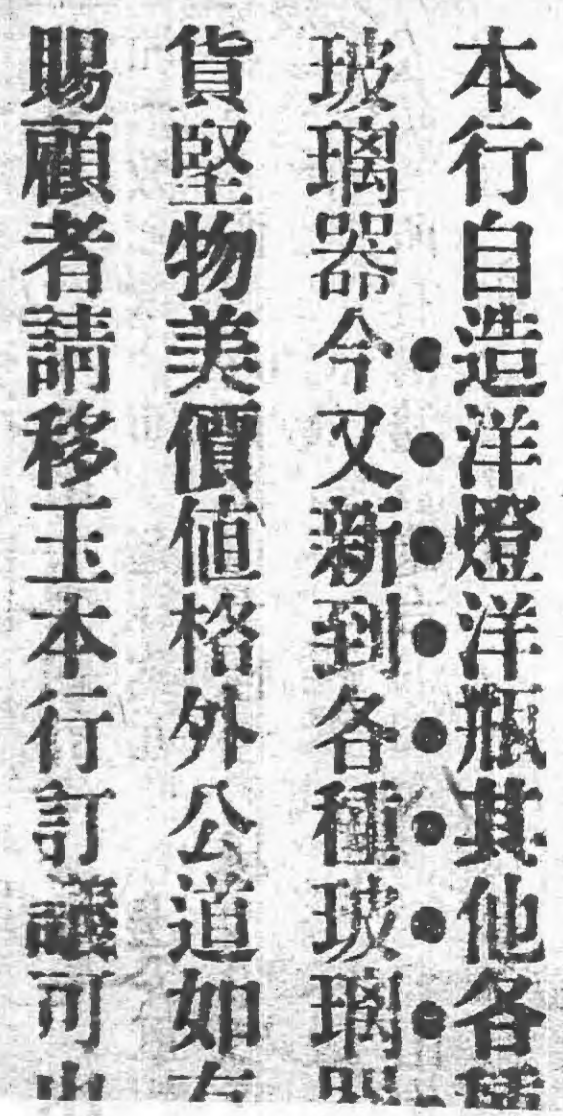 本行自造洋燈洋瓶其他各種
玻璃器今又新到各種玻璃器
貨堅物美價值格外公道如有
賜顧者請移玉本行訂議可也